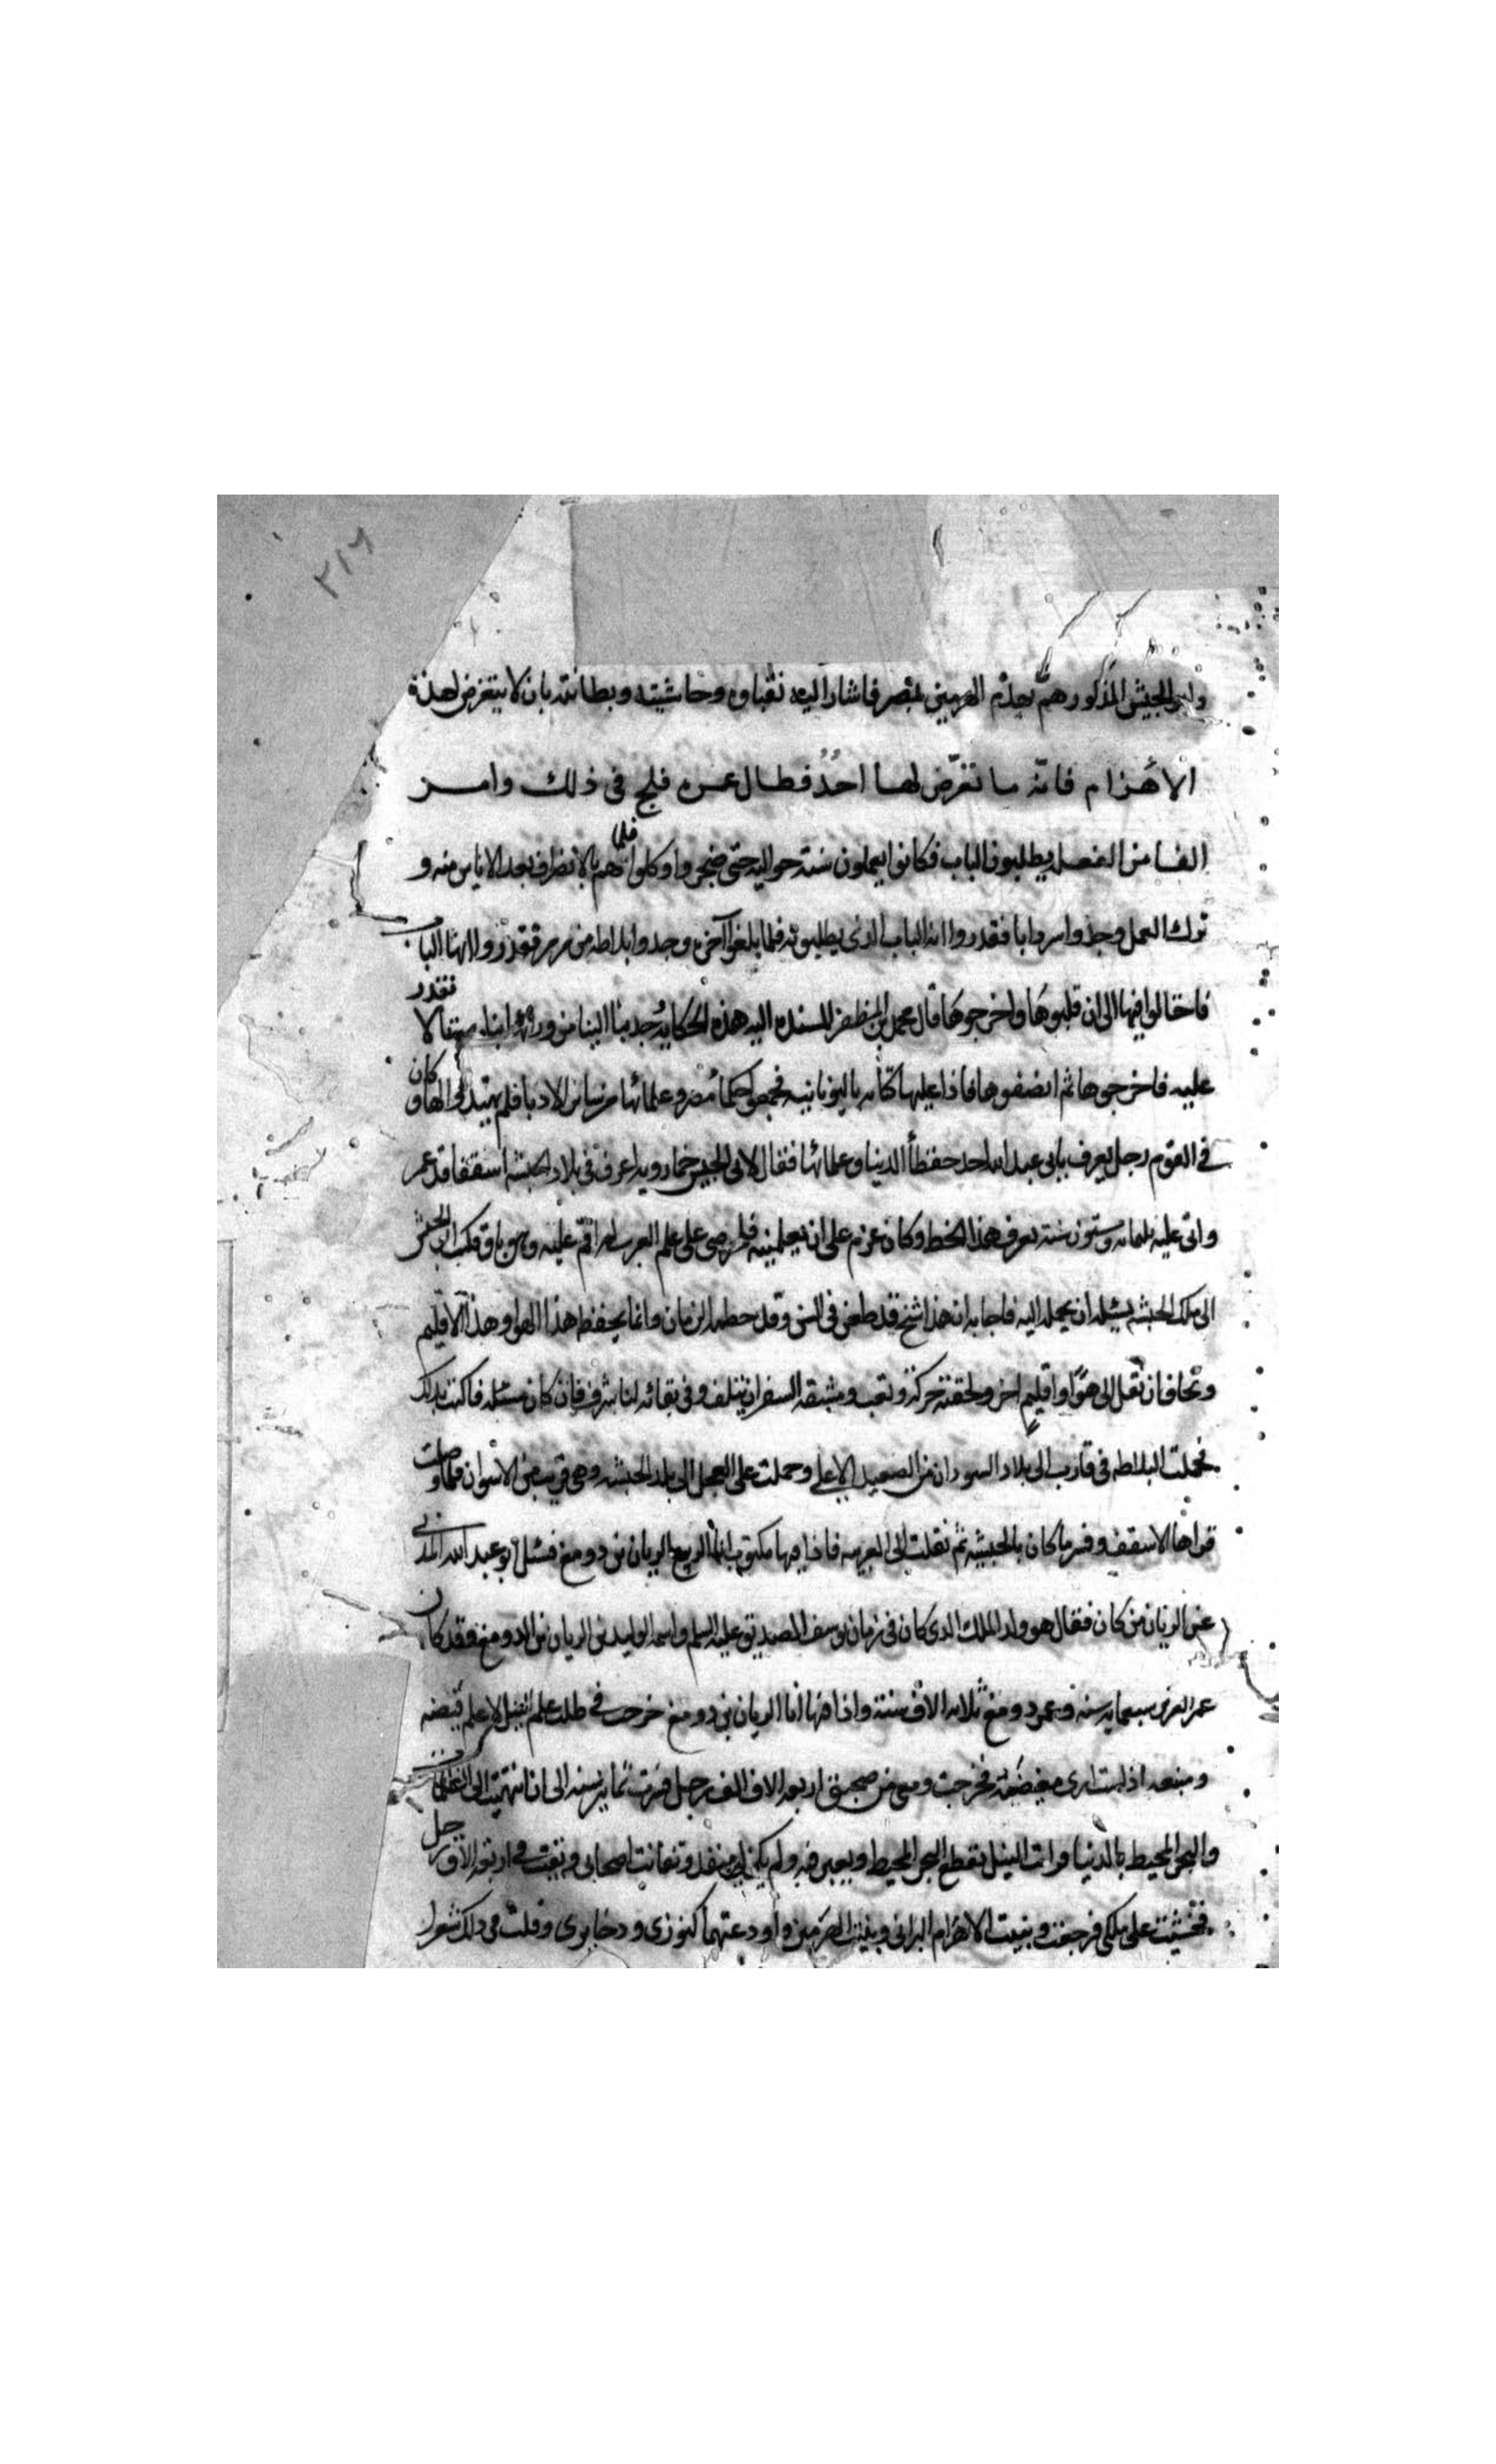 ٢١٦
وابو الجيش المذكور همّ بهدم الهرمين بمصر فاشار اليه نقباوه وحاشيته وبطانته بان لا يتعرض لهذه
الاهرام فانه ما تعرّض لها احدٌ فطال عمره فلج في ذلك وامر
الفا من الفعله يطلبون الباب فكانوا يعملون سنة حواليه حتى ضجروا وكلوا فلما هم بالانصراف بعد الاياس منه و
ترك العمل وجدوا سردابا فقدروا انه الباب الذي يطلبونه فلما بلغوا آخره وجدوا بلاطه من مرمر فقدروا انها الباب
فاحتالوا فيها الى ان قلبوها واخرجوها قال محمد بن المظفر المسنده اليه هذه الحكاية وجدنا البنا من ورائها بناء لا نقدر
عليه فاخرجوها ثم انضفوها فاذا عليها كتابه باليونانيه فجمعوا حكماء مصر وعلمائها من ساير الاديا فلم يهتدوا لها وكان
في القوم رجل يعرف بابي عبد الله احد حفظة الدنيا وعلمائها فقال لابي الجيش خمارويه اعرف في بلاد الحبشه اسقفا قد عمر
واتى عليه ثلثمائه وستون سنه يعرف هذا الخط وكان عزم على ان يعلمنيه فلحرصي على علم العرب لم اقم عليه وهو باق فكتب ابو الجيش
الى ملك الحبشه يسئله ان يحمله اليه فاجابه ان هذا شيخ قد طعن في السن وقد حطمه الزمان وانما يحفظه هذا الهوا وهذا الاقليم
ونخاف ان نقل الى هواء واقليم اخر ولحقته حركة وتعب ومشقة السفر ان يتلف وفي بقائه لنا شرف فان كان مسئله فاكتب بذلك
فحملت البلاطه في قارب الى بلاد السودان من الصعيد الاعلى وحملت على العجل الى بلد الحبشه وهي قريب من الاسوان فلما وصلت
قراها الاسقف وفسر ما كان بالحبشيه ثم نقلت الى العربيه فاذا فيها مكتوب انا الريان بن دومغ فسئل ابو عبد الله المدني
عن الريان من كان فقال هو والد الملك الذي كان في زمان يوسف الصديق عليه السلم واسمه الوليد بن الريان بن الدومغ وقد كان
عمر العزيز سبعمايه سنه وعمر دومغ ثلاثه الاف سنة واذا فيها انا الريان بن دومغ خرجت في طلب علم النيل لاعلم فيضه
ومنبعه اذ كنت ارى مغيضه فخرجت ومعي من صحبني اربعه الاف الف رجل فسرت ثمانين سنه الى ان انتهيت الى الظلمات
والبحر المحيط بالدنيا فرايت النيل يقطع البحر المحيط ويعبر فيه ولم يكن لي منفذ وتمانت اصحابي وبقيت في اربعه الاف رجل
فخشيت على ملكي فرجعت وبنيت الاهرام البراني وبنيت الهرمين واودعتهما كنوزي وذخايري وقلت في ذلك شعرا